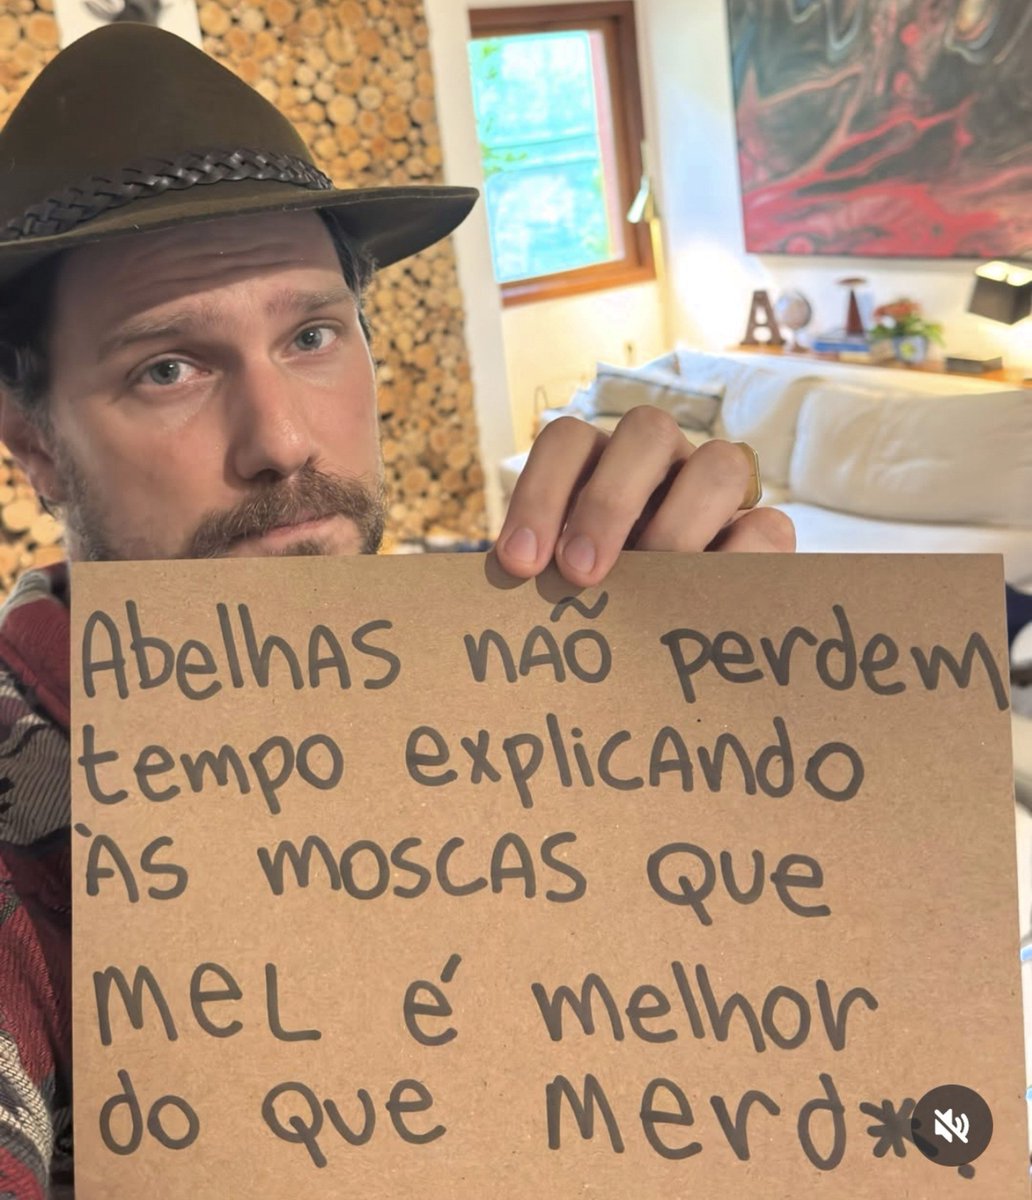 A
Abelhas não perdem
tempo explicando
às moscas que
mel é melhor
do que merd*.